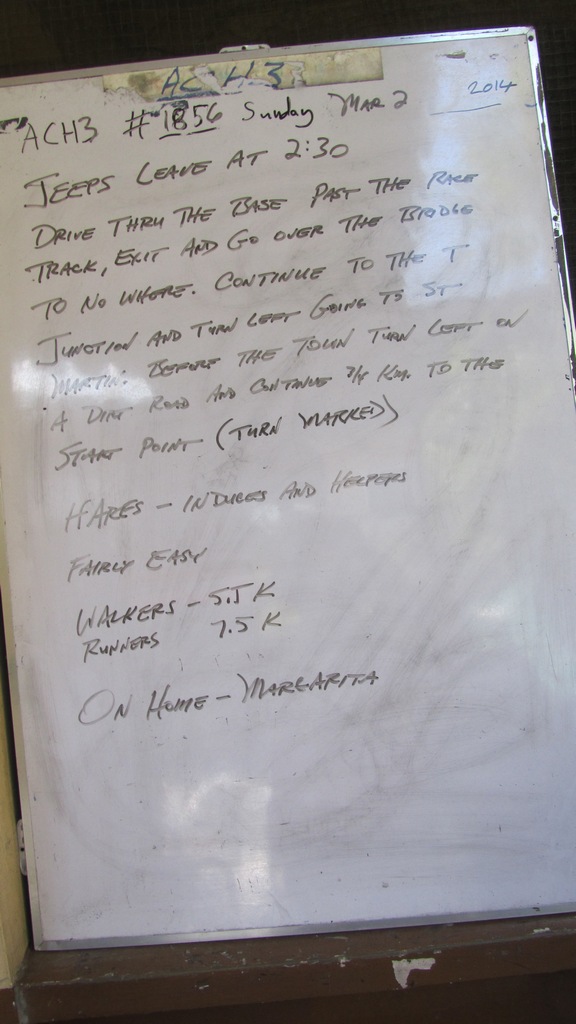 ACH3
ACH3 #1856 Sunday Mar 2 2014
JEEPS LEAVE AT 2:30
DRIVE THRU THE BASE PAST THE RACE
TRACK, EXIT AND GO OVER THE BRIDGE
TO NO WHERE. CONTINUE TO THE T
JUNCTION AND TURN LEFT GOING TO ST
MARTIN. BEFORE THE TOWN TURN LEFT ON
A DIRT ROAD AND CONTINUE 3/4 KM. TO THE
START POINT (TURN MARKED)
HARES - INDULGES AND HELPERS
FAIRLY EASY
WALKERS - 5.5 K
RUNNERS 7.5 K
ON HOME - MARGARITA